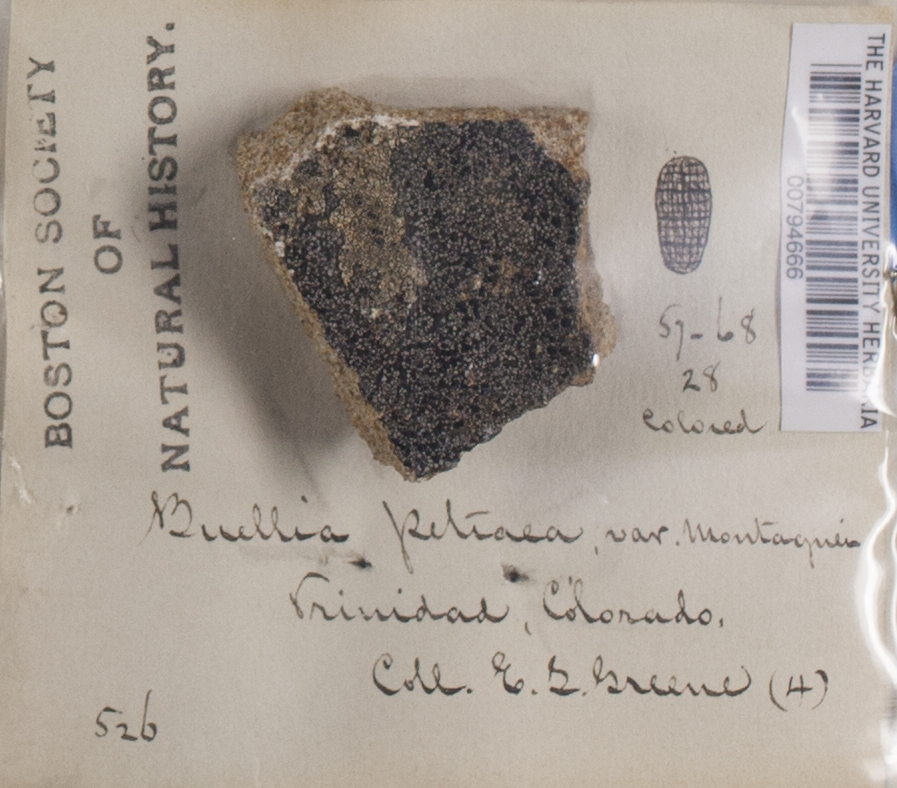 BOSTON SOCIETY
OF
NATURAL HISTORY.
THE HARVARD UNIVERSITY HERBARIA
00794666
57-68
28
Colored
Buellia petraea, var. Montagnei
Trinidad, Colorado.
Coll. E. L. Greene (4)
526